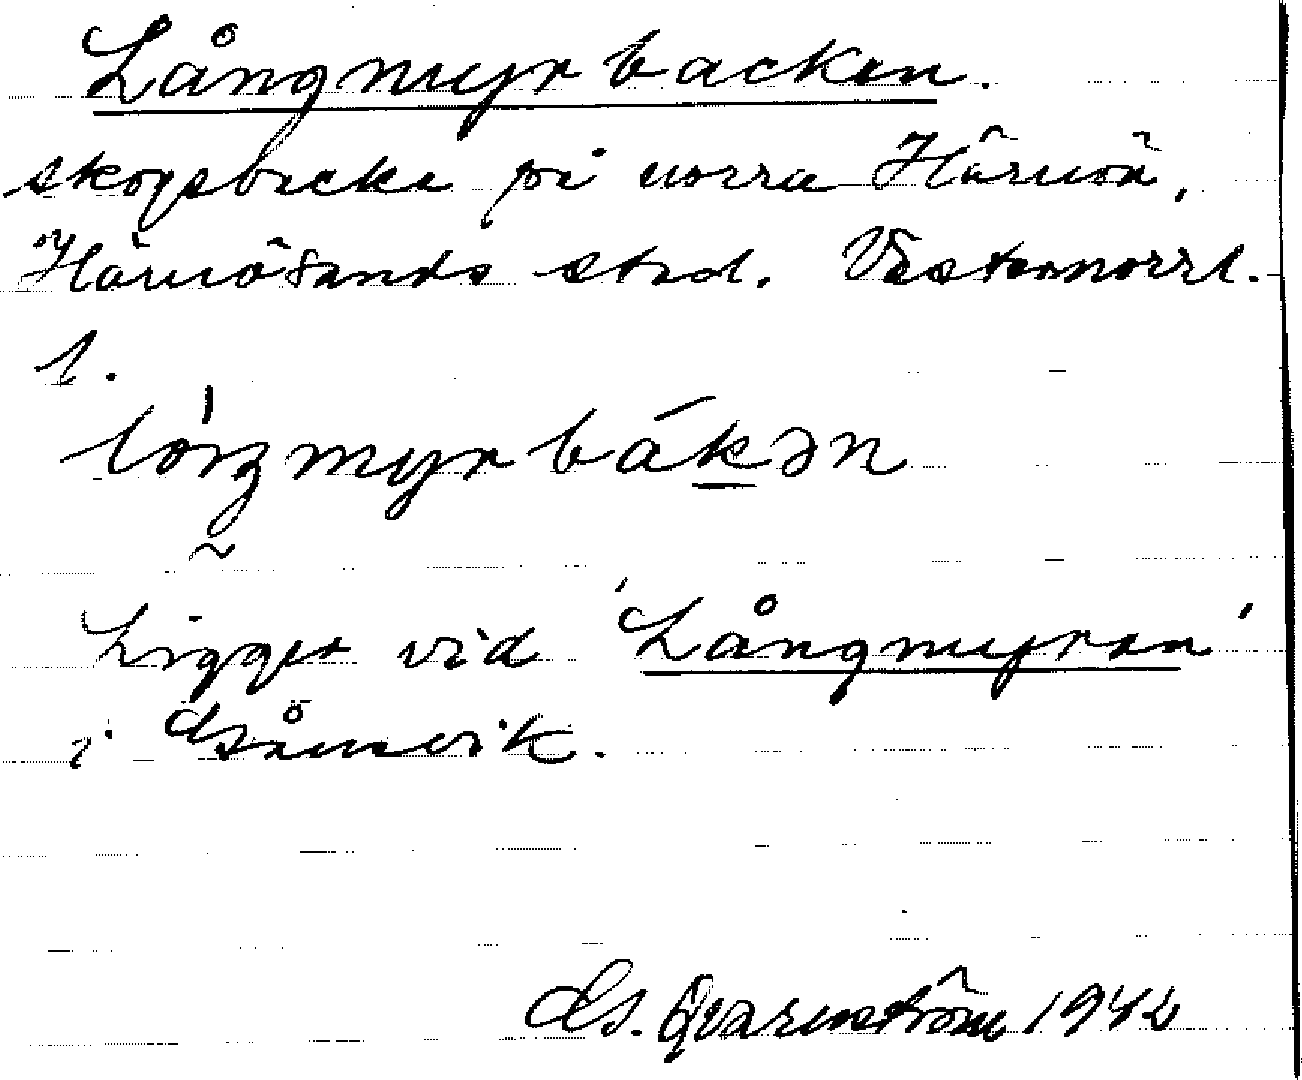 Långmyrbacken.
skogsbacke på norra Härnön,
Härnösands stad. Västernorrl.
l.
lóŋmyrbákən
Ligger vid 'Långmyran'
i
Qvarnström 1942